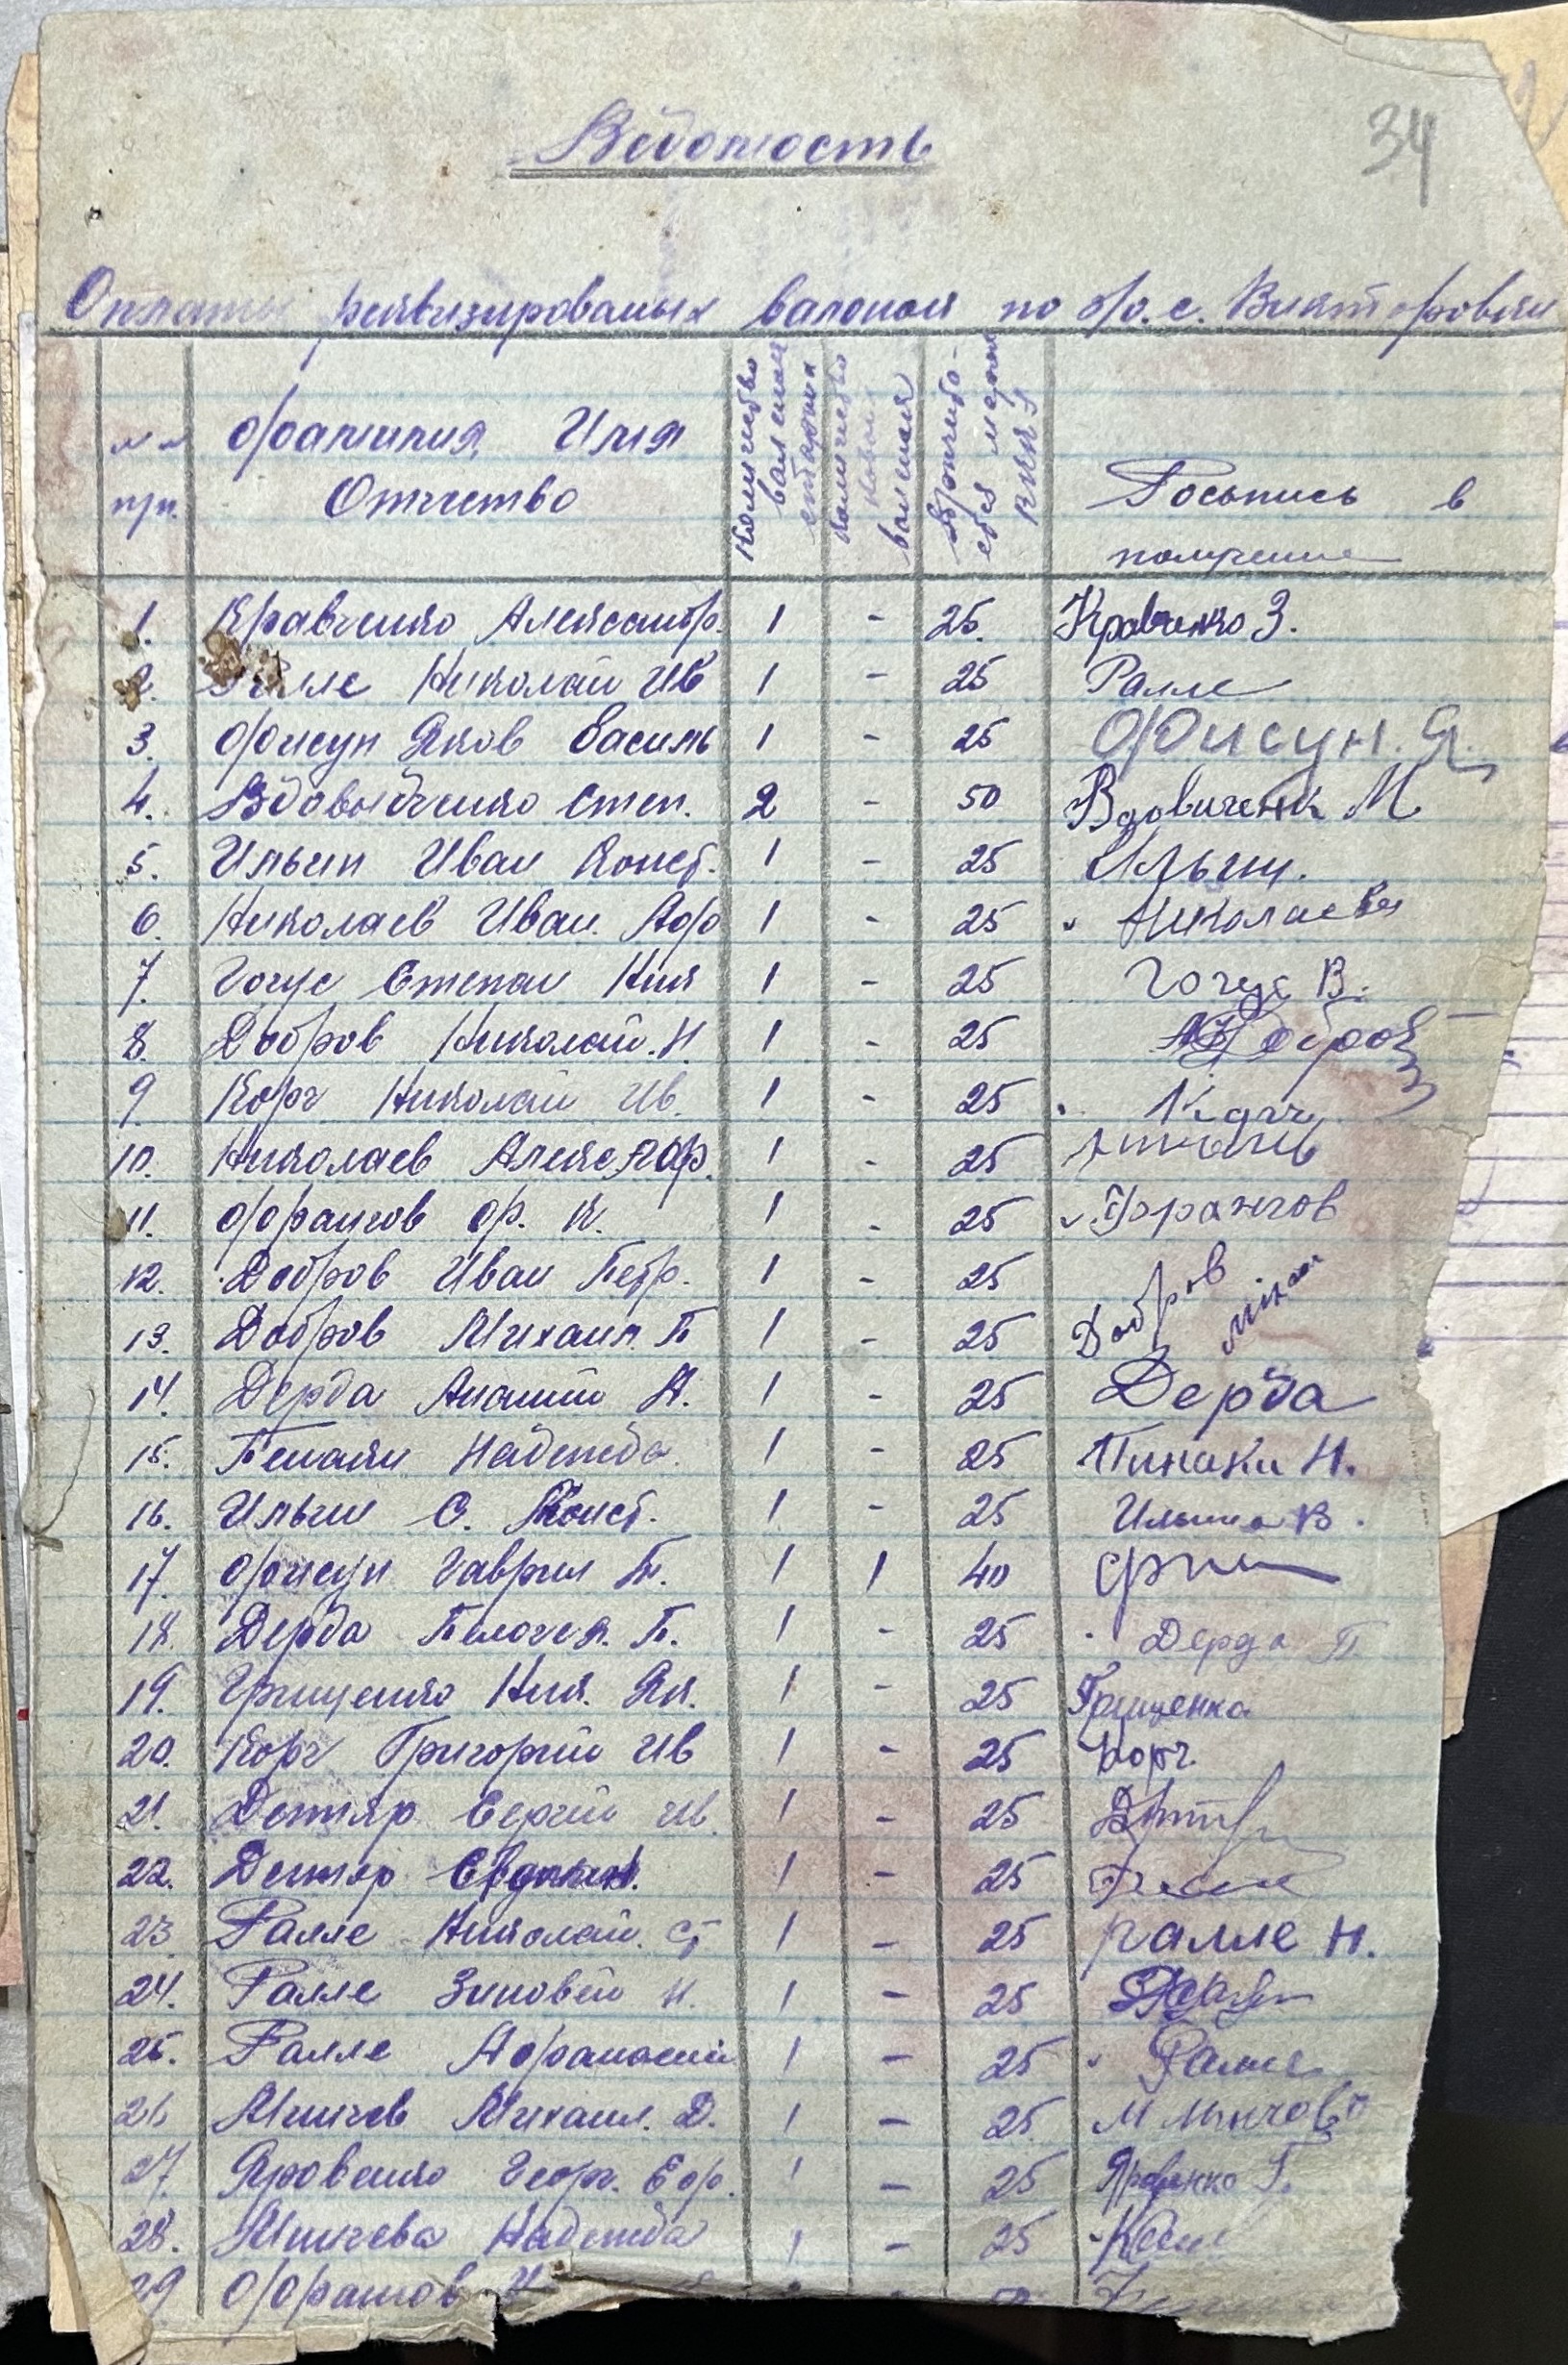 34
Ведомость
Оплаты реквизированых валенок по о/о. с. Викторовки
№ №
п/п.
Фамилия Имя
Отчество
Количество
валенок
старых
Количество
новых
валенок
Причита-
ется
Роспись в
получение
1. Кравченко Александр. 1 - 25. Кравченко З.
2. Ралле Николай Ив 1 - 25 Ралле
3. Фисун Яков Василь 1 - 25 Фисун. Я.
4. Вдовыдченко Степ. 2 - 50 Вдовиченк М
5. Ильин Иван Конст. 1 - 25 Ильин.
6. Николаев Иван. Аф 1 - 25 Николаева
7. Гогус Степан Ник 1 - 25 Гогус В.
8. Добров Николай. Н. 1 - 25 Добров
9 Корч Николай Ив. 1 - 25 Корч
10. Николаев Алекс Аф. 1 - 25
11. Франгов Ф. К. 1 - 25 Франгов
12. Добров Иван Петр. 1 - 25
13. Добров Михаил. П 1 - 25 Добров Михаи
14. Дерда Ананий А. 1 - 25 Дерда
15. Пенаки Надежда. 1 - 25 Пинаки Н.
16. Ильин С. Конст. 1 - 25 Ильина В.
17. Фисун Гаврил 1 1 40
18. Дерда Пелагея. П. 1 - 25 Дерда П
19. Грищенко Ник. Як. 1 - 25 Грищенко
20. Корч Григорий Ив 1 - 25 Корч.
21. Дегтяр Сергей Ив. 1 - 25
22. Дегтяр Евдоким. 1 - 25
23. Ралле Николай. Ст 1 - 25 Ралле Н.
24. Ралле Зиновей Н. 1 - 25
25. Ралле Афанасий 1 - 25 Ралле
26 Минчев Михаил. Д. 1 - 25 М Минчов
27. Яровенко Георг. Еф. 1 - 25 Яровенко Г.
28. Минчева Надежда 1 - 25
29 Франгов